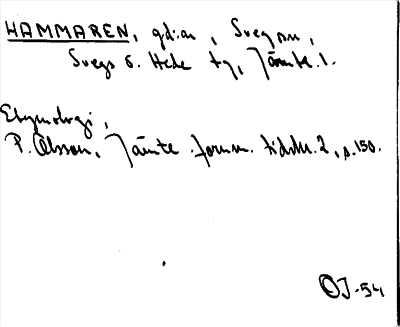 HAMMAREN, gd:ar, Sveg sn,
Svegs o. Hede tg, Jämtl. l.
Etymologi,
P. Olsson, Jämte. fornm. tidskr. 2, s. 150.
OJ -54